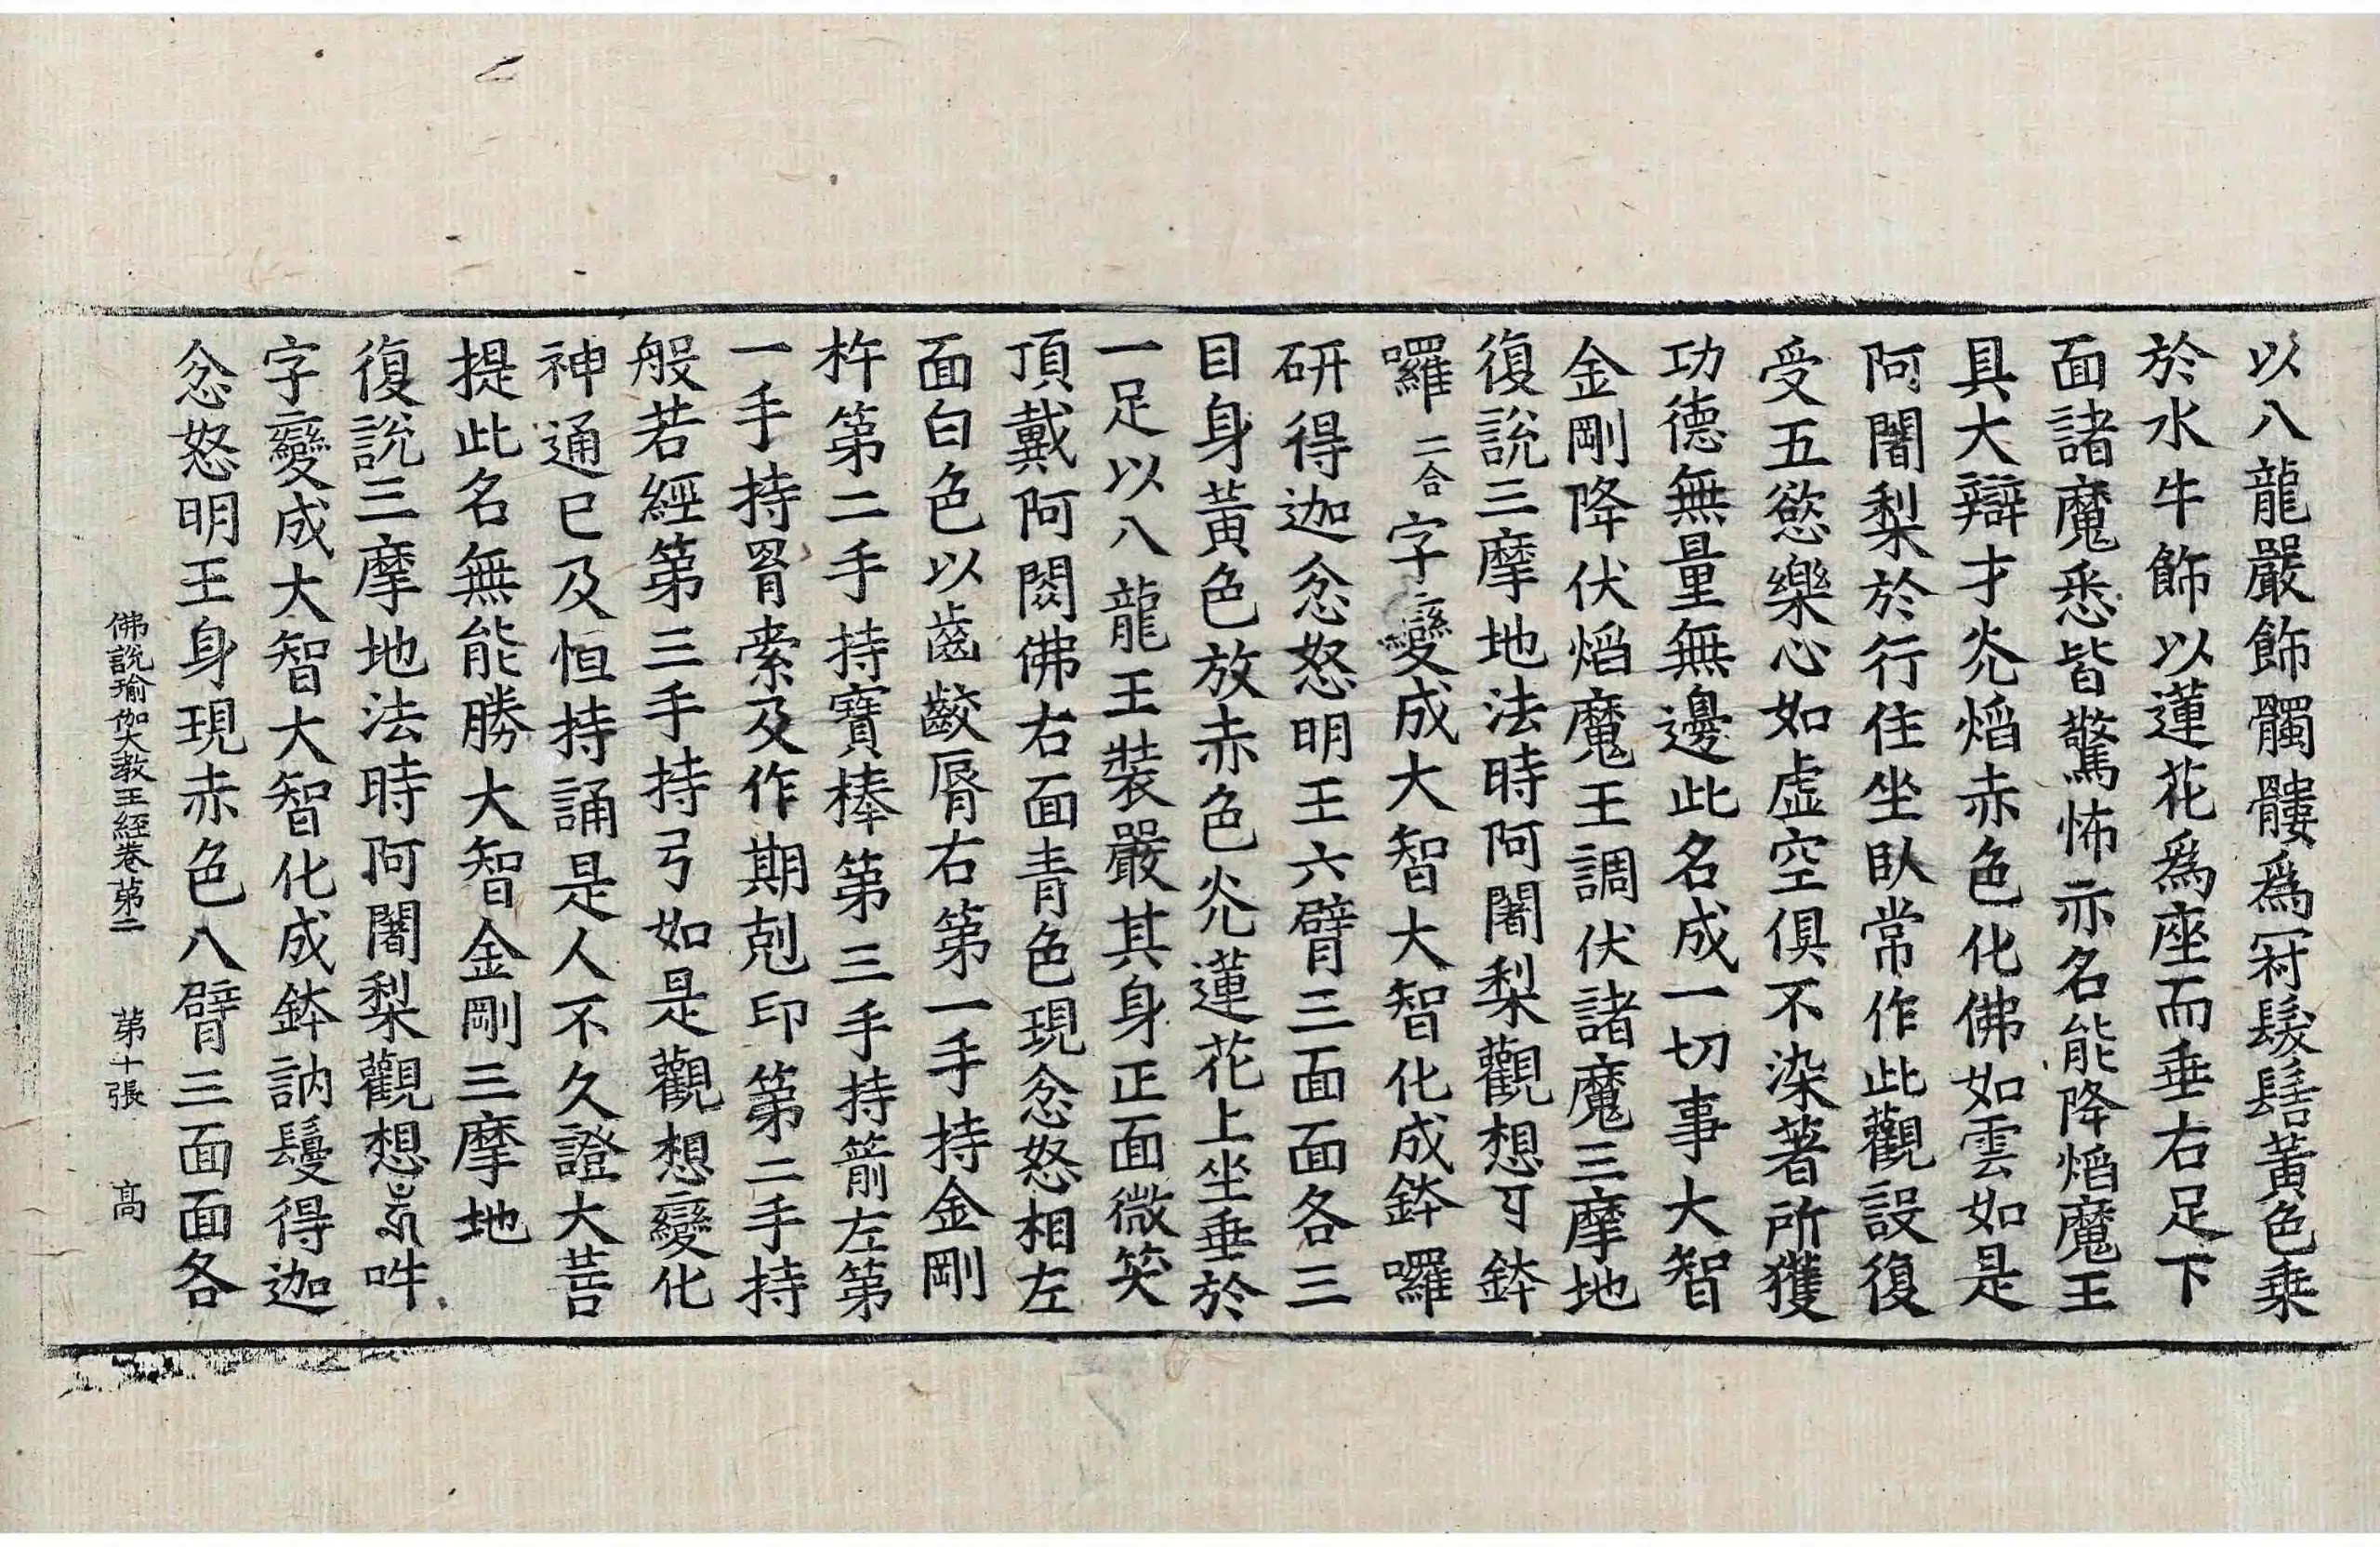 以八龍嚴飾髑髏爲冠髮髻黃色乗
於水牛飾以蓮花爲座而垂右足下
面諸魔悉皆驚怖亦名能降焰魔王
具大辯才光焰赤色化佛如雲如是
阿闍梨於行住坐臥常作此觀設復
受五慾樂心如虛空俱不染著所獲
功德無量無邊此名成一切事大智
金剛降伏焰魔王調伏諸魔三摩地
復說三摩地法時阿闍梨觀想 鉢
囉二合字變成大智大智化成鉢囉
研得迦忿怒明王六臂三面面各三
目身黃色放赤色光蓮花上坐垂於
一足以八龍王裝嚴其身正面微笑
頂戴阿閦佛右面青色現忿怒相左
面白色以齒齩脣右第一手持金剛
杵第二手持寶棒第三手持箭左第
一手持罥索及作期剋印第二手持
般若經第三手持弓如是觀想變化
神通已及恒持誦是人不久證大菩
提此名無能勝大智金剛三摩地
復說三摩地法時阿闍梨觀想 吽
字變成大智大智化成鉢訥鬘得迦
忿怒明王身現赤色八臂三面面各
佛說瑜伽大教王經卷第二 第十張 高